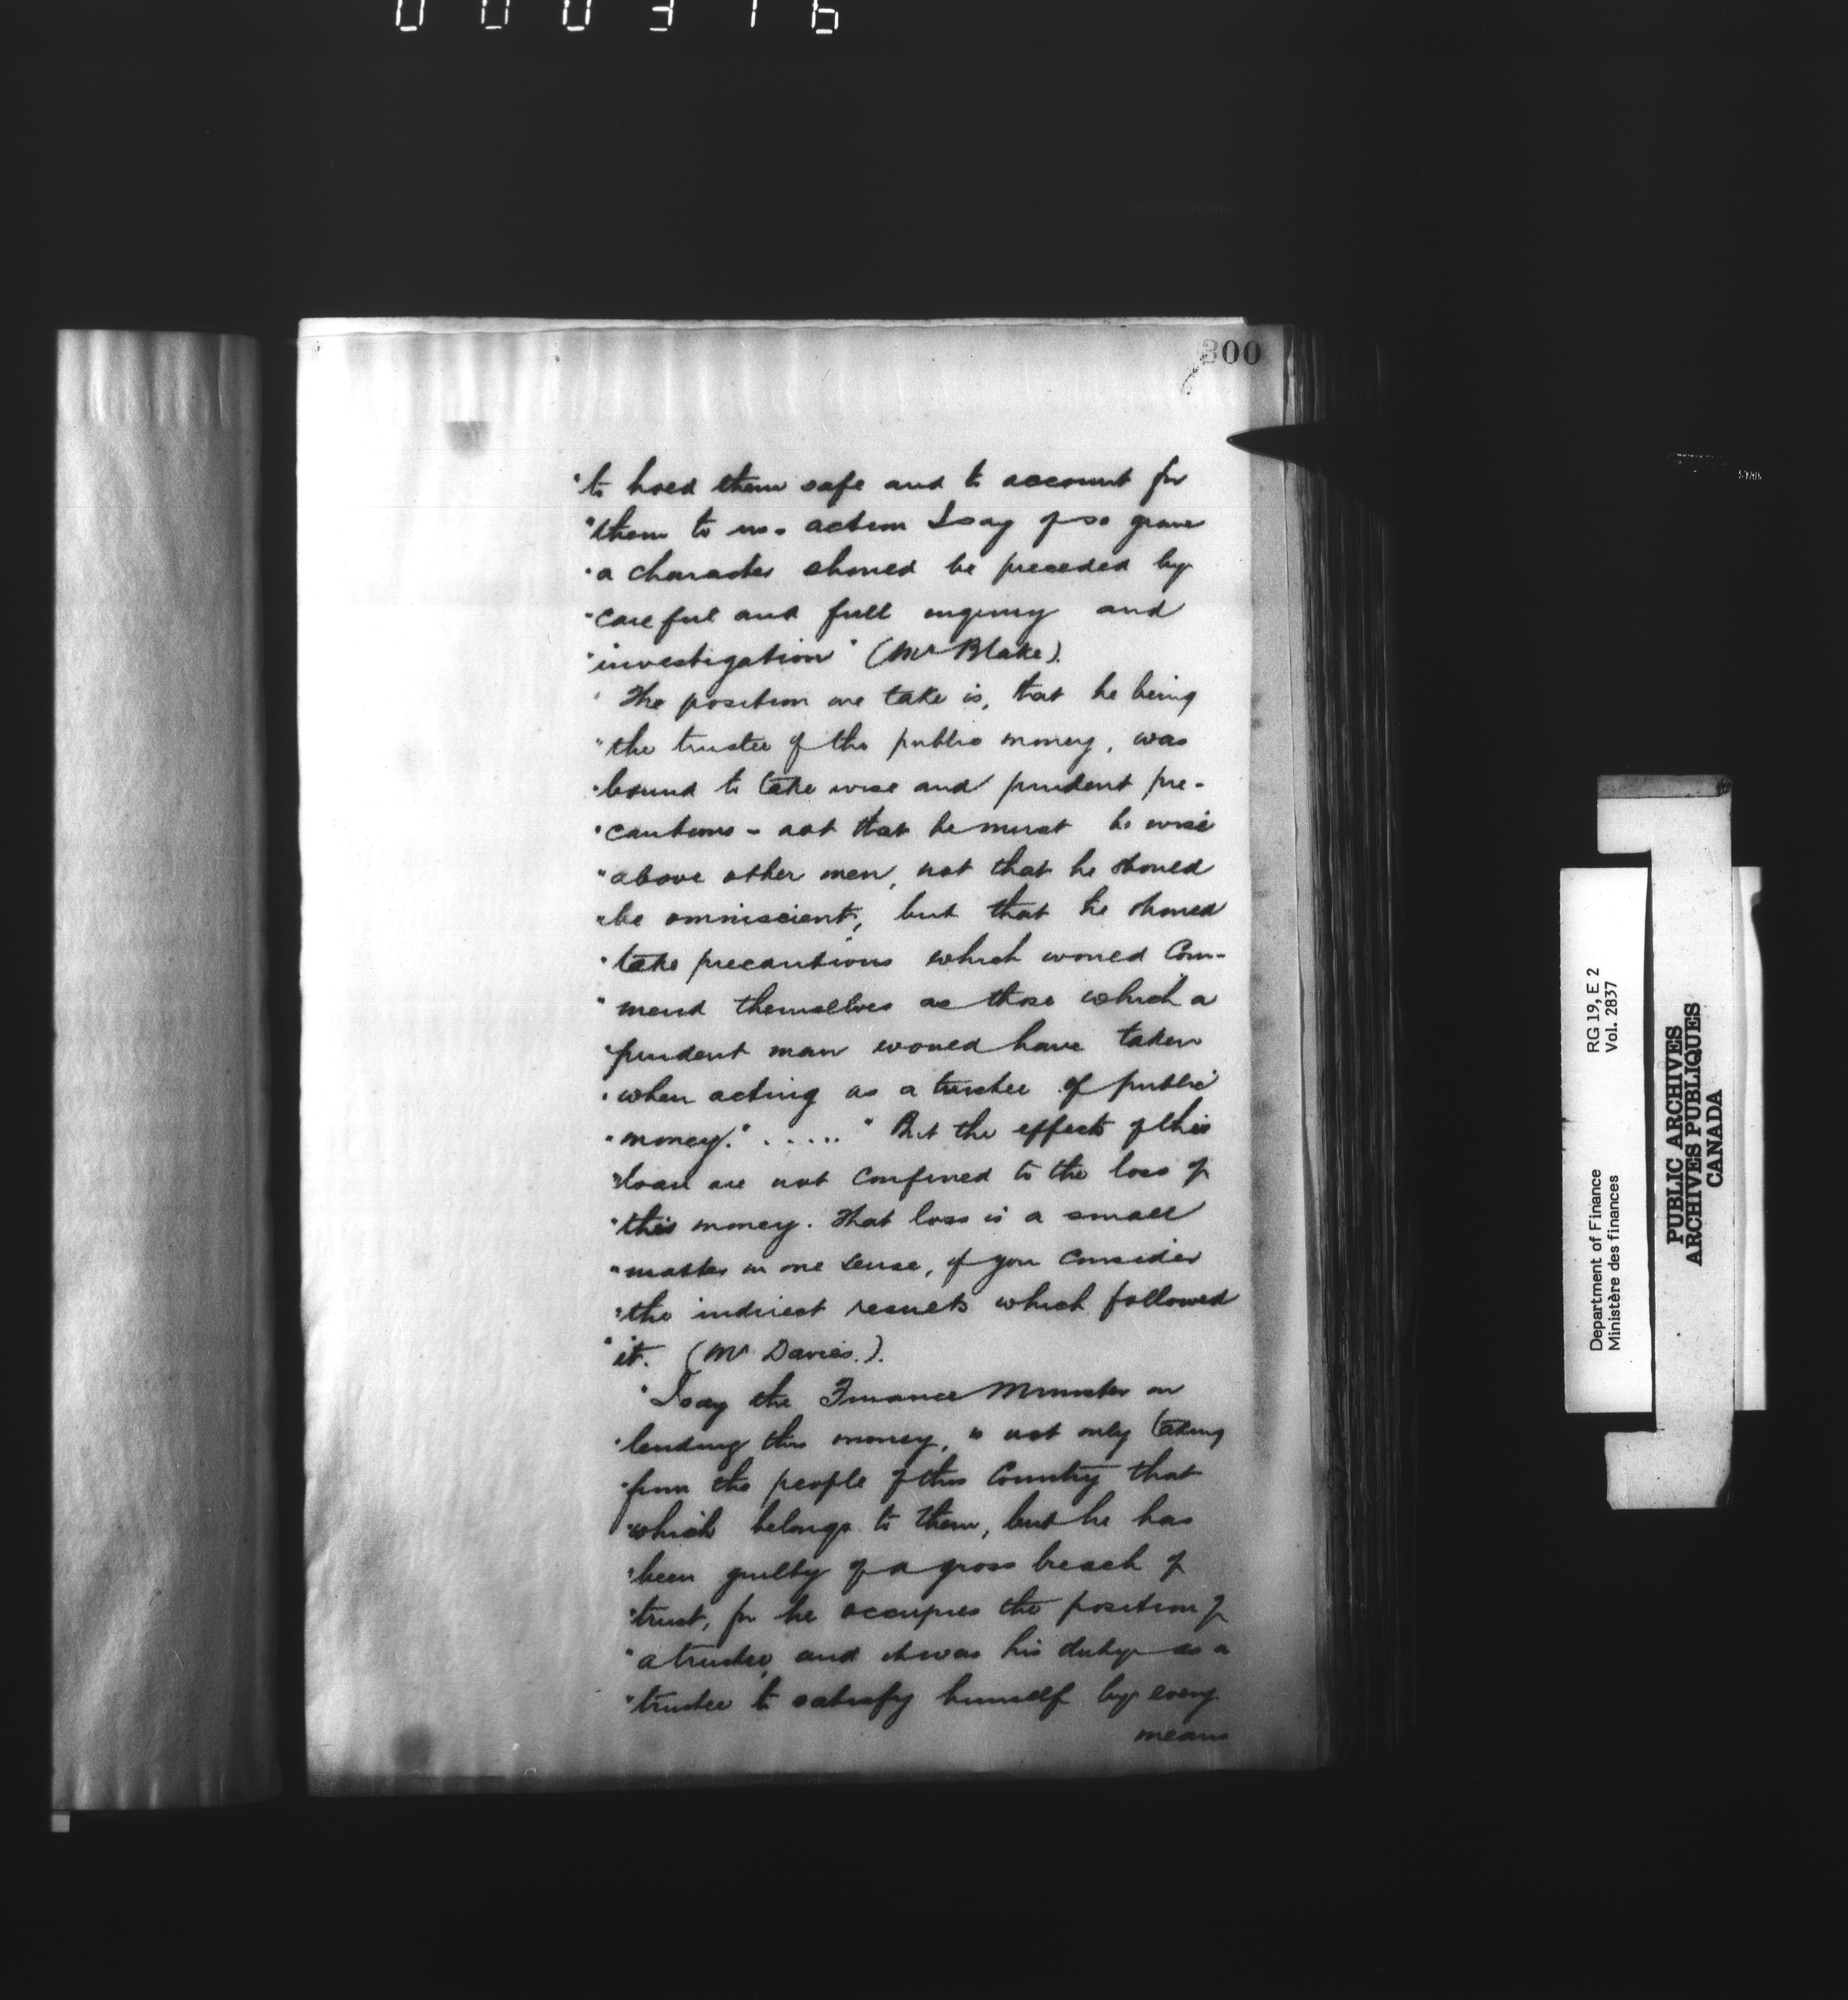 000316
300
"to hold them safe and to account for
"them to us - action I say of so grave
"a character should be preceded by
"careful and full inquiry and
"investigation" (Mr Blake).
"The position we take is, that he being
"the trustee of the public money, was
"bound to take wise and prudent pre-
"cautions - not that he must be wise
"above other men, not that he should
"be omniscient, but that he should
"take precautions which would Com-
"mend themselves as those which a
"prudent man would have taken
"when acting as a trustee of public
"money." ..... "But the effects of this
"loan are not confined to the loss of
"this money. That loss is a small
"matter in one sense, if you consider
"the indirect results which followed
"it. (Mr Davies.).
"I say the Finance Minister in
"lending this money, is not only taking
"from the people of this Country that
"which belongs to them, but he has
"been guilty of a gross breach of
"trust, for he occupies the position of
"a trustee, and it was his duty as a
"trustee to satisfy himself by every
means
Department of Finance RG 19, E 2
Ministère des finances Vol. 2837
PUBLIC ARCHIVES
ARCHIVES PUBLIQUES
CANADA